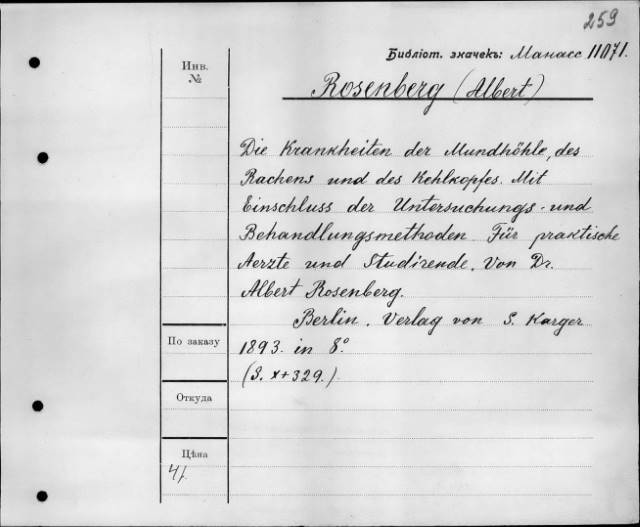 259
Библіот. значекъ: Манасс 11071.
Инв.
№
Rosenberg (Albert)
Die Krankheiten der Mundhöhle, des
Rachens und des Kehlkopfes. Mit
Einschluss der Untersuchungs- und
Behandlungsmethoden Für praktische
Aerzte und Studirende. Von Dr.
Albert Rosenberg.
Berlin. Verlag von S. Karger
По заказу
1893. in 8.º
(S. X+329.)
Откуда
Цѣна
4/.